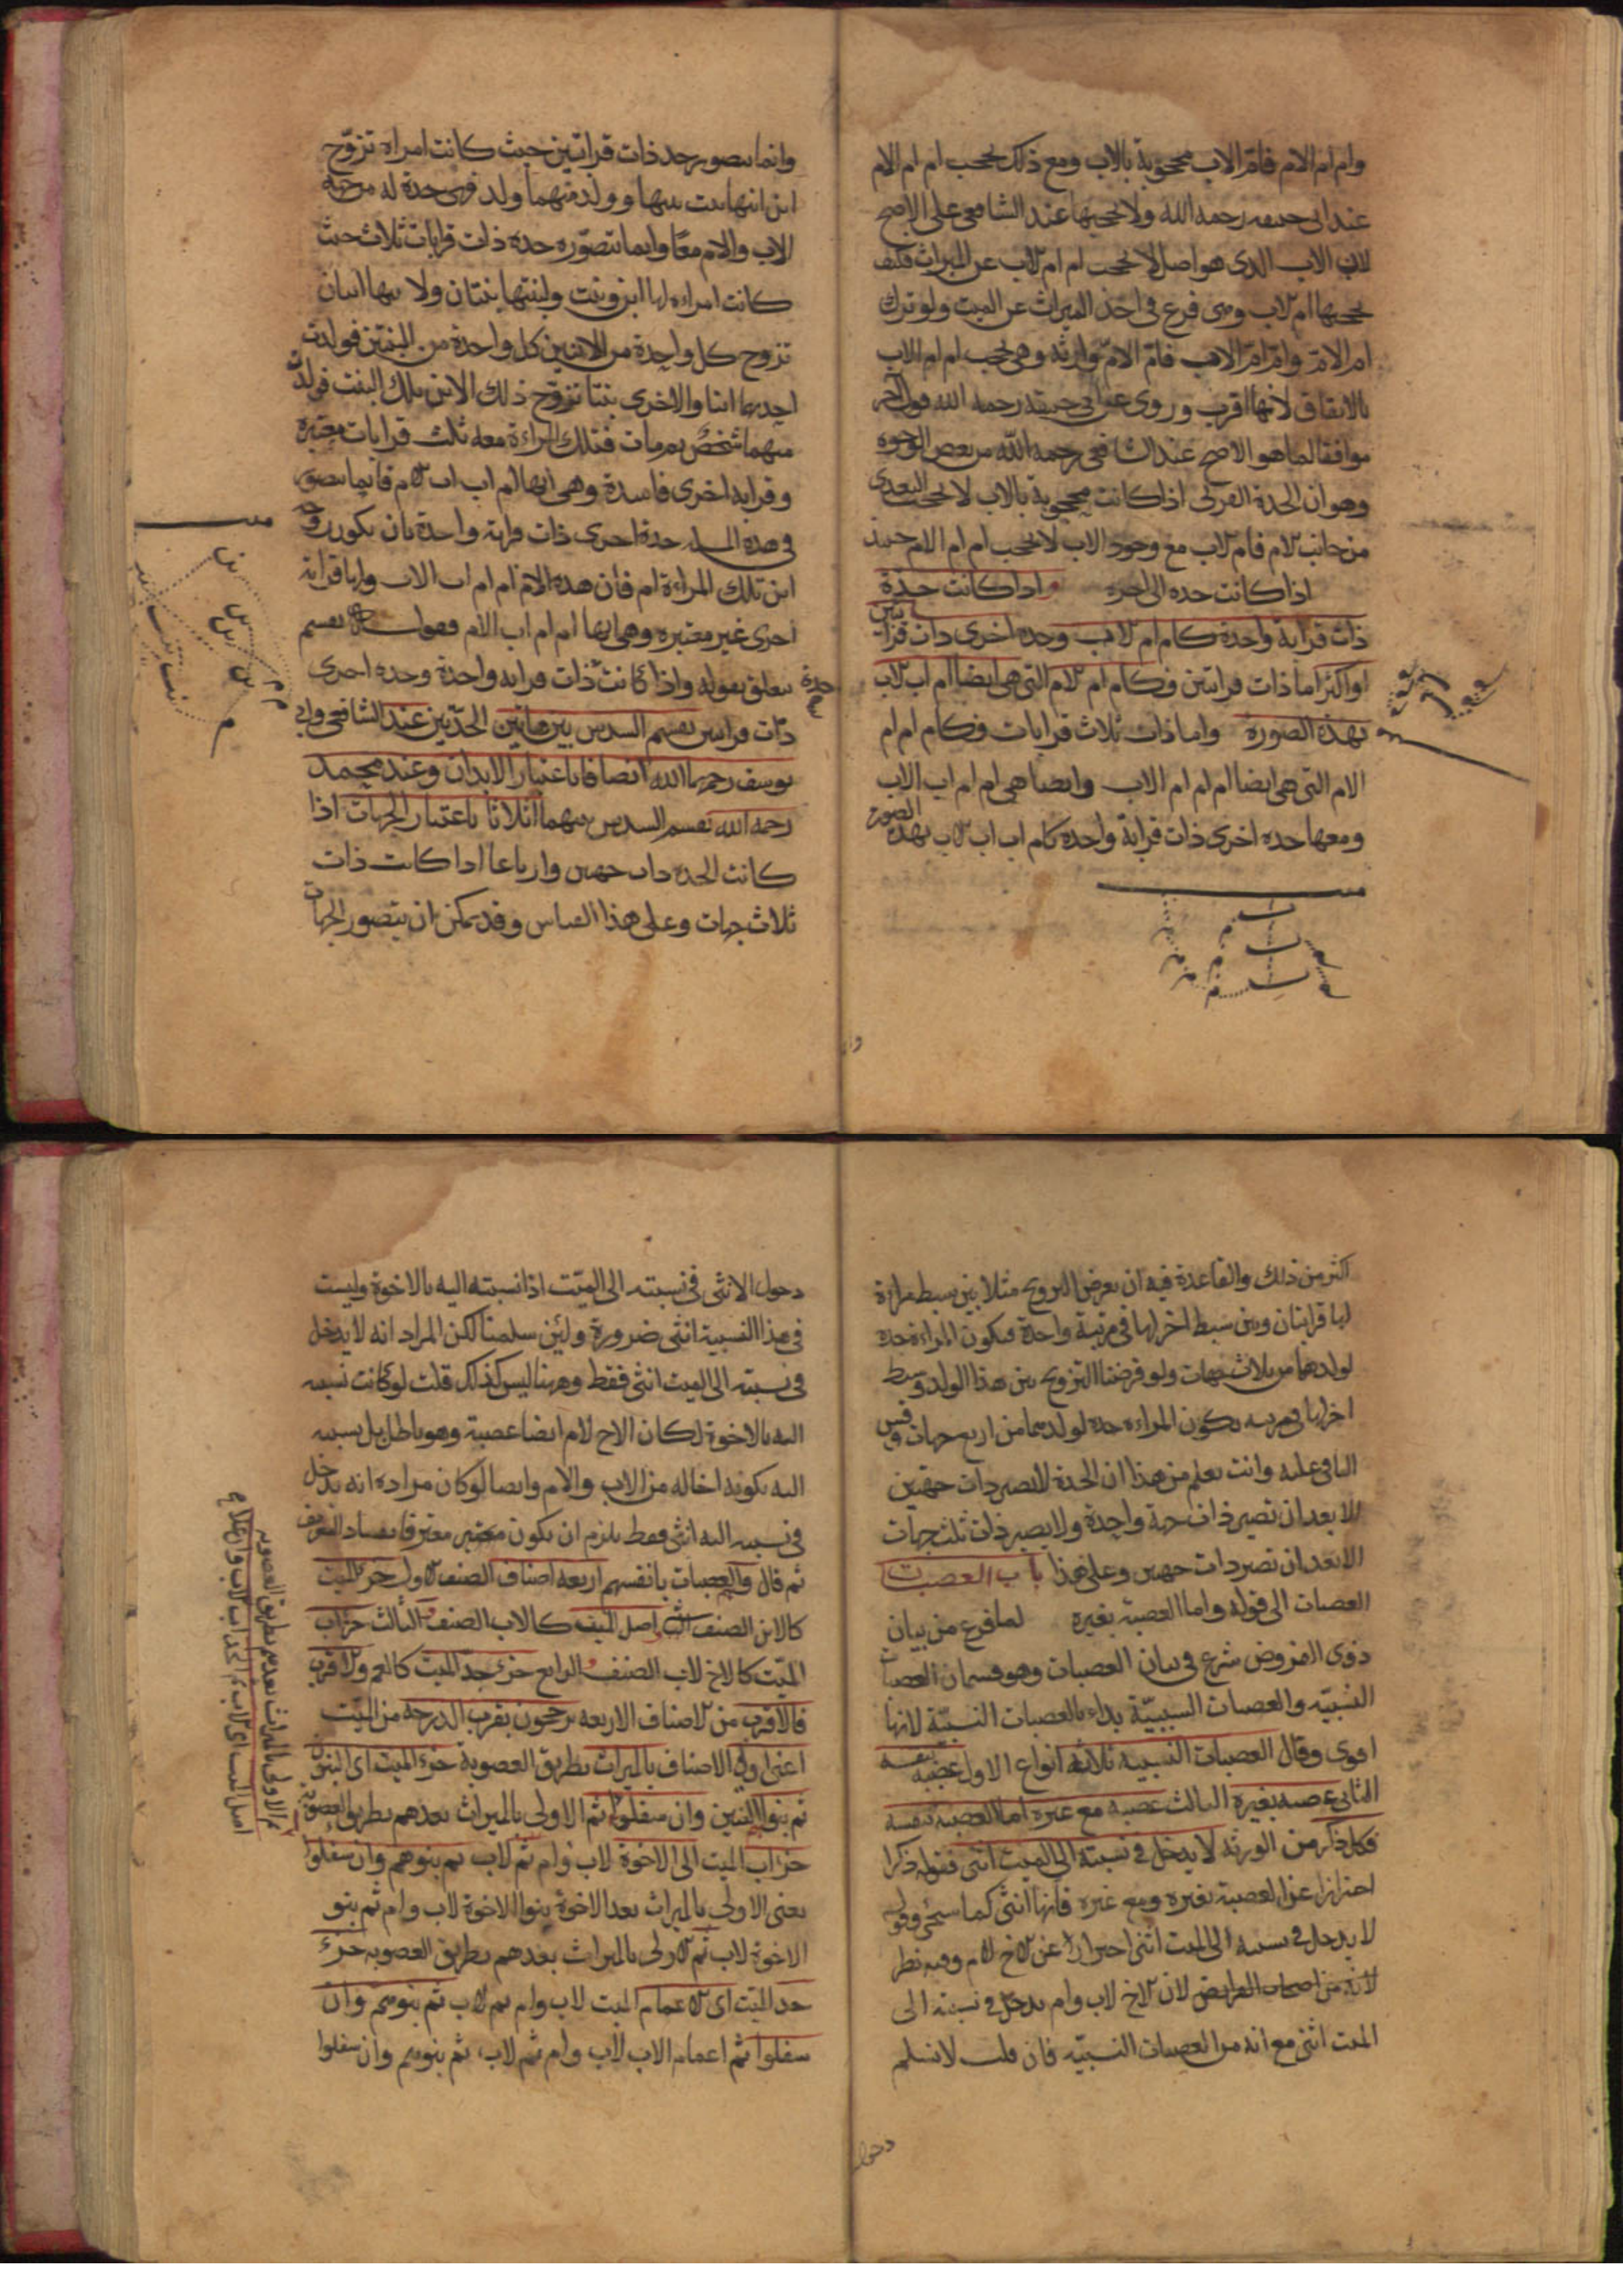 وام ام الام فام الاب محجوبة بالاب ومع ذلك تحجب ام ام الام
عند ابى حنيفه رحمه الله ولا تحجبها عند الشافعى على الاصح
لان الاب الذى هو اصل لا تحجب ام ام لاب عن الميراث فكيف
تحجبها ام لاب وهى فرع فى اخذ الميراث عن الميت ولو ترك
ام الام وام ام الاب فام الام وارثه وهى تحجب ام ام الاب
بالاتفاق لانها اقرب وروى عن ابى حنيفة رحمه الله قول اخر
موافقا لما هو الاصح عند الشافعى رحمه الله من بعض الوجوه
وهو ان الجدة القربى اذا كانت محجوبة بالاب لا تحجب البعدى
من جانب الام فام لاب مع وجود الاب لا تحجب ام ام الام حينئذ
اذا كانت جده الى اخره واذا كانت جدة
ذات قرابة واحدة كام ام لاب وجده اخرى ذات قرابتين
او اكثر اما ذات قرابتين فكام ام لام التى هى ايضا ام اب لاب
بهذه الصورة واما ذات ثلاث قرابات فكام ام ام
الام التى هى ايضا ام ام ام الاب وايضا هى ام ام اب الاب
ومعها جده اخرى ذات قرابة واحده كام اب اب لاب بهذه الصورة
وانما يتصور جد ذات قرابتين حيث كانت امراه تزوج
ابن ابنها بنت بنتها وولد منهما ولد فهى جدة له من جهة
الاب والام معا وانما تتصوره جده ذات قرابات ثلاث حيث
كانت امراءه لها ابن وبنت ولبنتها بنتان ولابنها ابنان
تزوج كل واحدة من الابنين كل واحدة من البنتين فولدت
احديهما ابنا والاخرى بنتا تزوج ذلك الابن بتلك البنت فولد
منهما شخص ثم مات فتلك المراءة معه ثلث قرابات معتبرة
وقرابه اخرى فاسدة وهى انها ام اب اب لام فانما يتصور
فى هذه المسله جدة اخرى ذات قرابة واحدة بان يكون زوجة
ابن تلك المراءة ام فان هذه الام ام ام اب الاب ولها قرابة
اخرى غير معتبره وهى انها ام ام اب الام فقوله يقسم
يتعلق بقوله واذا كانت جدة ذات قرابه واحدة وجده اخرى
ذات قرابتين يقسم السدس بين هاتين الجدتين عند الشافعى وابى
يوسف رحمهما الله انصافا باعتبار الابدان وعند محمد
رحمه الله يقسم السدس بينهما اثلاثا باعتبار الجهات اذا
كانت الجدة ذات جهتين وارباعا اذا كانت ذات
ثلاث جهات وعلى هذا القياس وقد يمكن ان يتصور الجهات
اكثر من ذلك والقاعدة فيه ان يعرض التزويج مثلا بين سبط مراءة
لها قرابتان وبين سبط اخر لها فى مرتبة واحدة فيكون المراءة جدة
لولدهما من ثلاث جهات ولو فرضنا التزويج بين هذا الولد وسبط
اخر لها فى مرتبه يكون المراءة جدة لولدهما من اربع جهات وقس
الباقى عليه وانت تعلم من هذا ان الجدة لا تصير ذات جهتين
الا بعد ان تصير ذات جهة واحدة ولا يصير ذات ثلث جهات
الا بعد ان تصير ذات جهتين وعلى هذا باب العصبات
العصبات الى قوله واما العصبة بغيره لما فرغ من بيان
ذوى الفروض شرع فى بيان العصبات وهو قسمان العصبات
النسبيه والعصبات السببية بداء بالعصبات النسبية لانها
اقوى وقال العصبات النسبيه ثلاثة انواع الاول عصبة بنفسه
الثانى عصبه بغيره الثالث عصبه مع غيره اما العصبه بنفسه
فكل ذكر من الورثه لا يدخل فى نسبته الى الميت انثى فقوله ذكرا
احترازا عن العصبة بغيره ومع غيره فانها انثى كما سيجئ وقوله
لا يدخل فى نسبه الى الميت انثى احترازا عن لاخ لام وفيه نظر
لانه من اصحاب الفرايض لان لاخ لاب وام يدخل فى نسبته الى
الميت انثى مع انه من العصبات النسبيه فان قلت لا نسلم
دخول
دخول الانثى فى نسبته الى الميت اذا نسبته اليه بالاخوة وليست
فى هذا النسبة انثى ضرورة ولئن سلمنا لكن المراد انه لا يدخل
فى نسبته الى الميت انثى فقط وههنا ليس كذلك قلت لو كانت نسبته
اليه بالاخوة لكان الاخ لام ايضا عصبة وهو باطل بل نسبته
اليه بكونه اخا له من الاب والام وايضا لو كان مراده انه يدخل
فى نسبته اليه انثى فقط يلزم ان يكون معتبر معترفا بفساد التعريف
ثم قال والعصبات بانفسهم اربعه اصناف الصنف لاول جزء الميت
كالابن الصنف الثانى اصل الميت كالاب الصنف الثالث جزء اب
الميت كالاخ لاب الصنف الرابع جزء جد الميت كالعم ولاقرب
فالاقرب من لاصناف الاربعه يرجحون بقرب الدرجه من الميت
اعنى اولى الاصناف بالميراث بطريق العصوبة جزء الميت اى البنون
ثم بنوا البنين وان سفلوا ثم الاولى بالميراث بعدهم بطريق العصوبة
جزء اب الميت الى الاخوة لاب وام ثم لاب ثم بنوهم وان سفلوا
يعنى الاولى بالميراث بعد الاخوة بنوا الاخوة لاب وام ثم بنو
الاخوة لاب ثم لاولى بالميراث بعدهم بطريق العصوبه جزء
جد الميت اى لاعمام الميت لاب وام ثم لاب ثم بنوهم وان
سفلوا ثم اعمام الاب لاب وام ثم لاب ثم بنوهم وان سفلوا
ثم الاولى بالميراث بعدهم بطريق العصوبه
اصل الميت اى لاب ثم الجد اب لاب وان علا